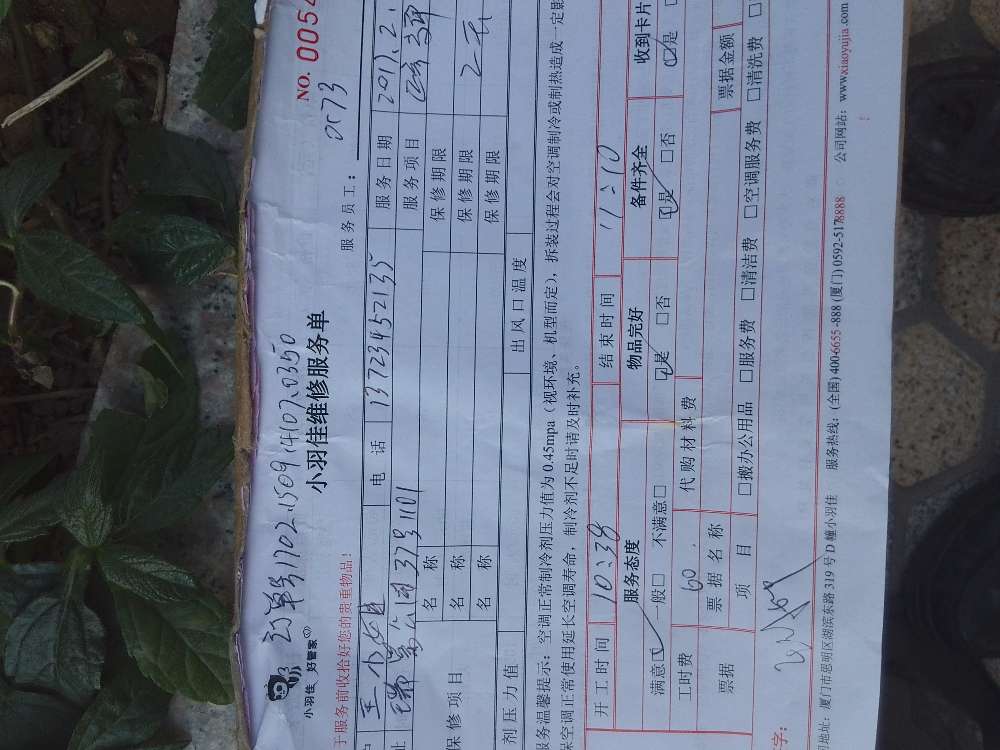 订单号1702.1509.14107.0350
小羽佳 好管家
小羽佳维修服务单
NO. 0054
于服务前收拾好您的贵重物品!
服务员工: 0573
王小姐 电话 13723452135 服务日期 2017.2.
371101 服务项目
保修项目 名称 保修期限
名称 保修期限
名称 保修期限
剂压力值 出风口温度
服务温馨提示:空调正常制冷剂压力值为0.45mpa(视环境、机型而定),拆装过程会对空调制冷或制热造成一定影
保空调正常使用延长空调寿命,制冷剂不足时请及时补充。
开工时间 10:38 结束时间 11:10
服务态度 物品完好 备件齐全 收到卡片
满意☑ 一般□ 不满意□ ☑是 □否 ☑是 □否 ☑是
工时费 60. 代购材料费
票据 票据名称 票据金额
项目 □搬办公用品 □服务费 □清洁费 □空调服务费 □清洗费
字:
地址:厦门市思明区湖滨东路319号D幢小羽佳 服务热线:(全国)400-6655-888 (厦门)0592-5178888 公司网站:www.xiaoyujia.com